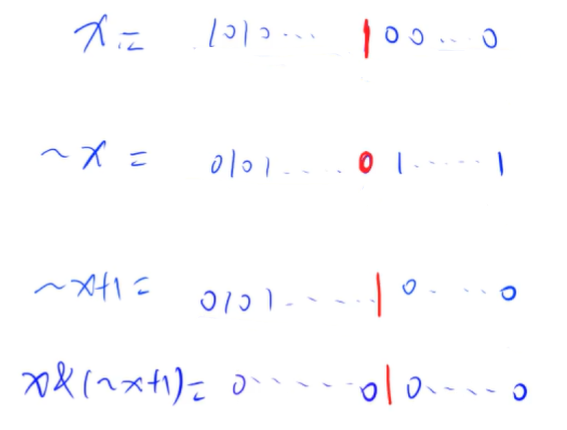 x = 1010... 100...0
~x = 0101.....01.....1
~x+1 = 0101.....10....0
x&(~x+1)= 0.....010.....0